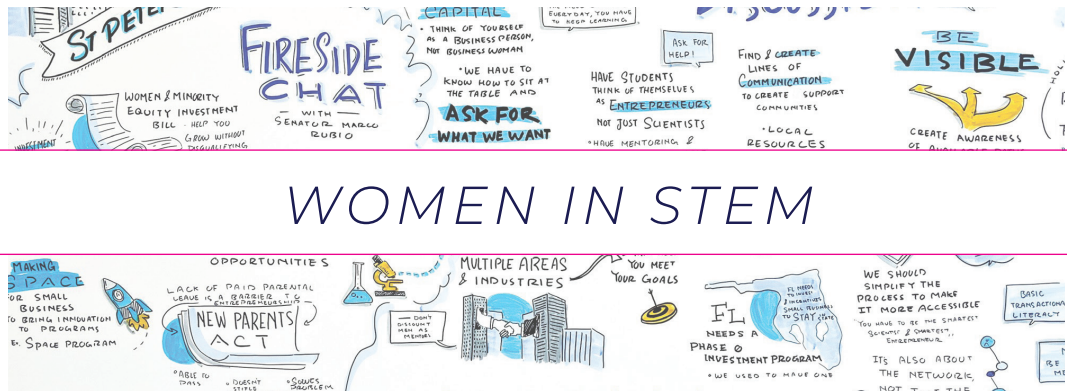 ST PETE
FIRESIDE
CHAT
WITH
SENATOR MARCO
RUBIO
WOMEN & MINORITY
EQUITY INVESTMENT
BILL - HELP YOU
GROW WITHOUT
DISQUALIFYING
INVESTMENT
CAPITAL
• THINK OF YOURSELF
AS A BUSINESS PERSON,
NOT BUSINESS WOMAN
• WE HAVE TO
KNOW HOW TO SIT AT
THE TABLE AND
ASK FOR
WHAT WE WANT
EVERYDAY, YOU HAVE
TO KEEP LEARNING.
ASK FOR
HELP!
HAVE STUDENTS
THINK OF THEMSELVES
AS ENTREPRENEURS
NOT JUST SCIENTISTS
• HAVE MENTORING &
FIND & CREATE
LINES OF
COMMUNICATION
TO CREATE SUPPORT
COMMUNITIES
• LOCAL
RESOURCES
BE
VISIBLE
CREATE AWARENESS
WOMEN IN STEM
MAKING
SPACE
FOR SMALL
BUSINESS
TO BRING INNOVATION
TO PROGRAMS
Ex. SPACE PROGRAM
OPPORTUNITIES
LACK OF PAID PARENTAL
LEAVE IS A BARRIER TO
ENTREPRENEURSHIP
NEW PARENTS
ACT
• ABLE TO
PASS
• DOESN'T
STIFLE
• SOLVES
PROBLEM
- DON'T
DISCOUNT
MEN AS
MENTORS
MULTIPLE AREAS
& INDUSTRIES
YOU MEET
YOUR GOALS
FL
NEEDS A
PHASE 0
INVESTMENT PROGRAM
• WE USED TO HAVE ONE
FL NEEDS
TO INVEST
& INCENTIVES
SMALL BUSINESS
TO STAY
WE SHOULD
SIMPLIFY THE
PROCESS TO MAKE
IT MORE ACCESSIBLE
YOU HAVE TO BE THE SMARTEST
SCIENTIST & SMARTEST
ENTREPRENEUR
IT'S ALSO ABOUT
THE NETWORK,
NOT
BASIC
TRANSACTIONAL
LITERACY